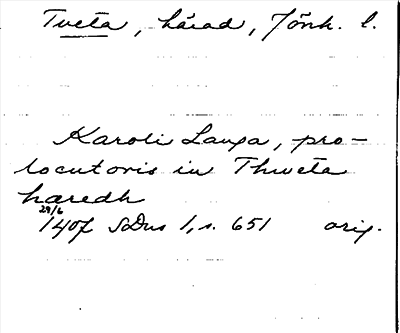 Tveta, härad, Jönk. l.
Karoli Langa, pro-
locutoris in Thweta
haredh
29/6
1407 SDns 1, s. 651 orig.